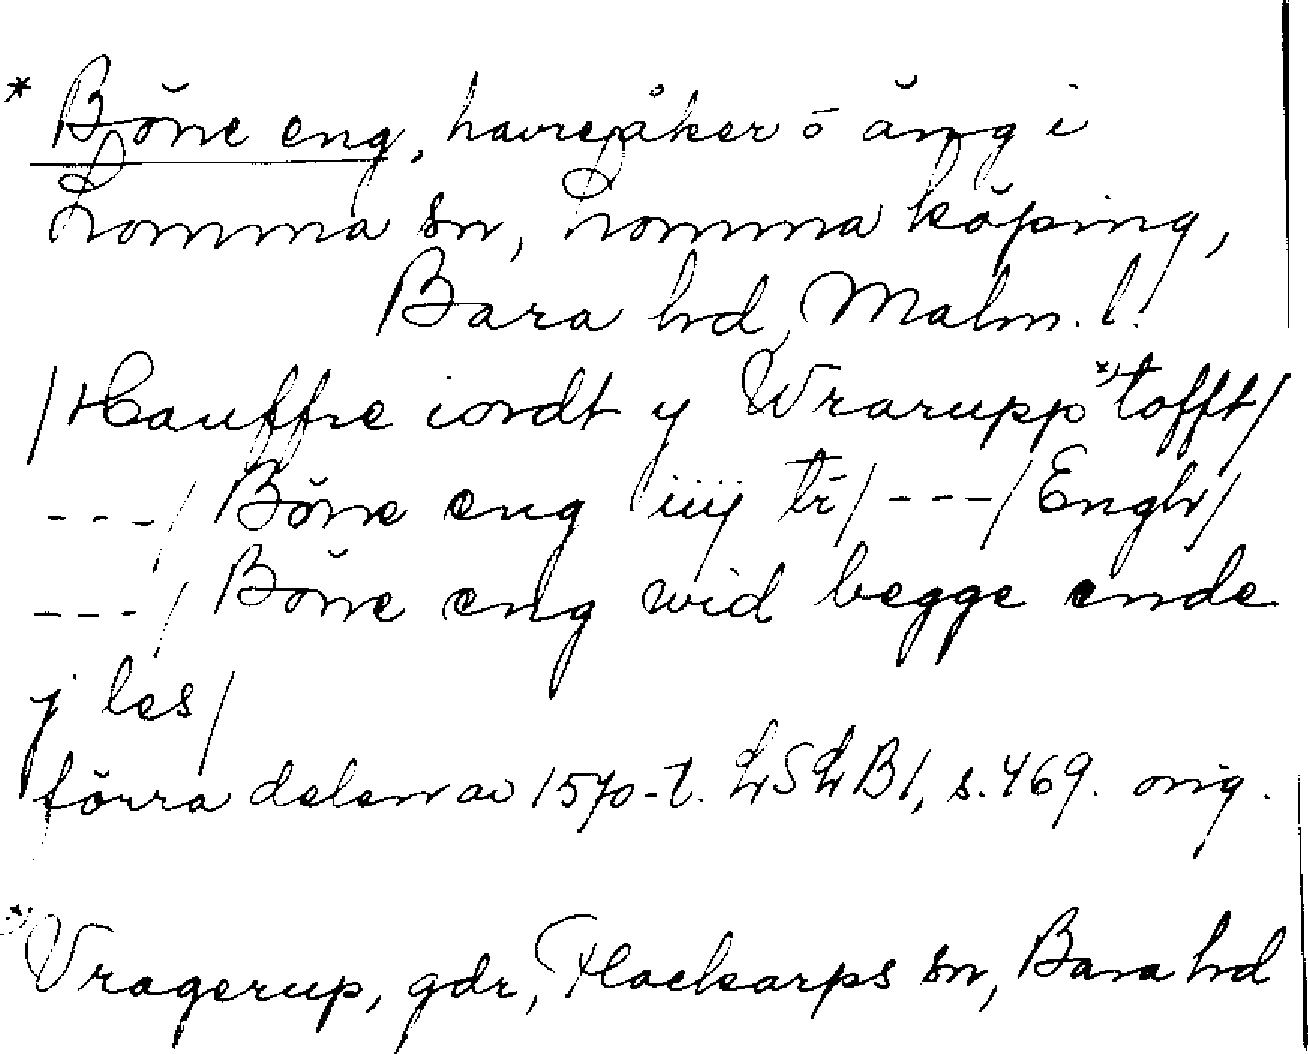 * Böne eng, havreåker o äng i
Lomma sn, Lomma köping,
Bara hd, Malm. l.
/Hauffre iordt y Wrarupp*) tofft/
---/ Böne eng iiij tr̄/ ---/Engh/
---/ Böne eng wid begge ende
j les/
förra delen av 1570-t. LSLB1, s. 469. orig.
*) Vragerup, gdr, Flackarps sn, Bara hd